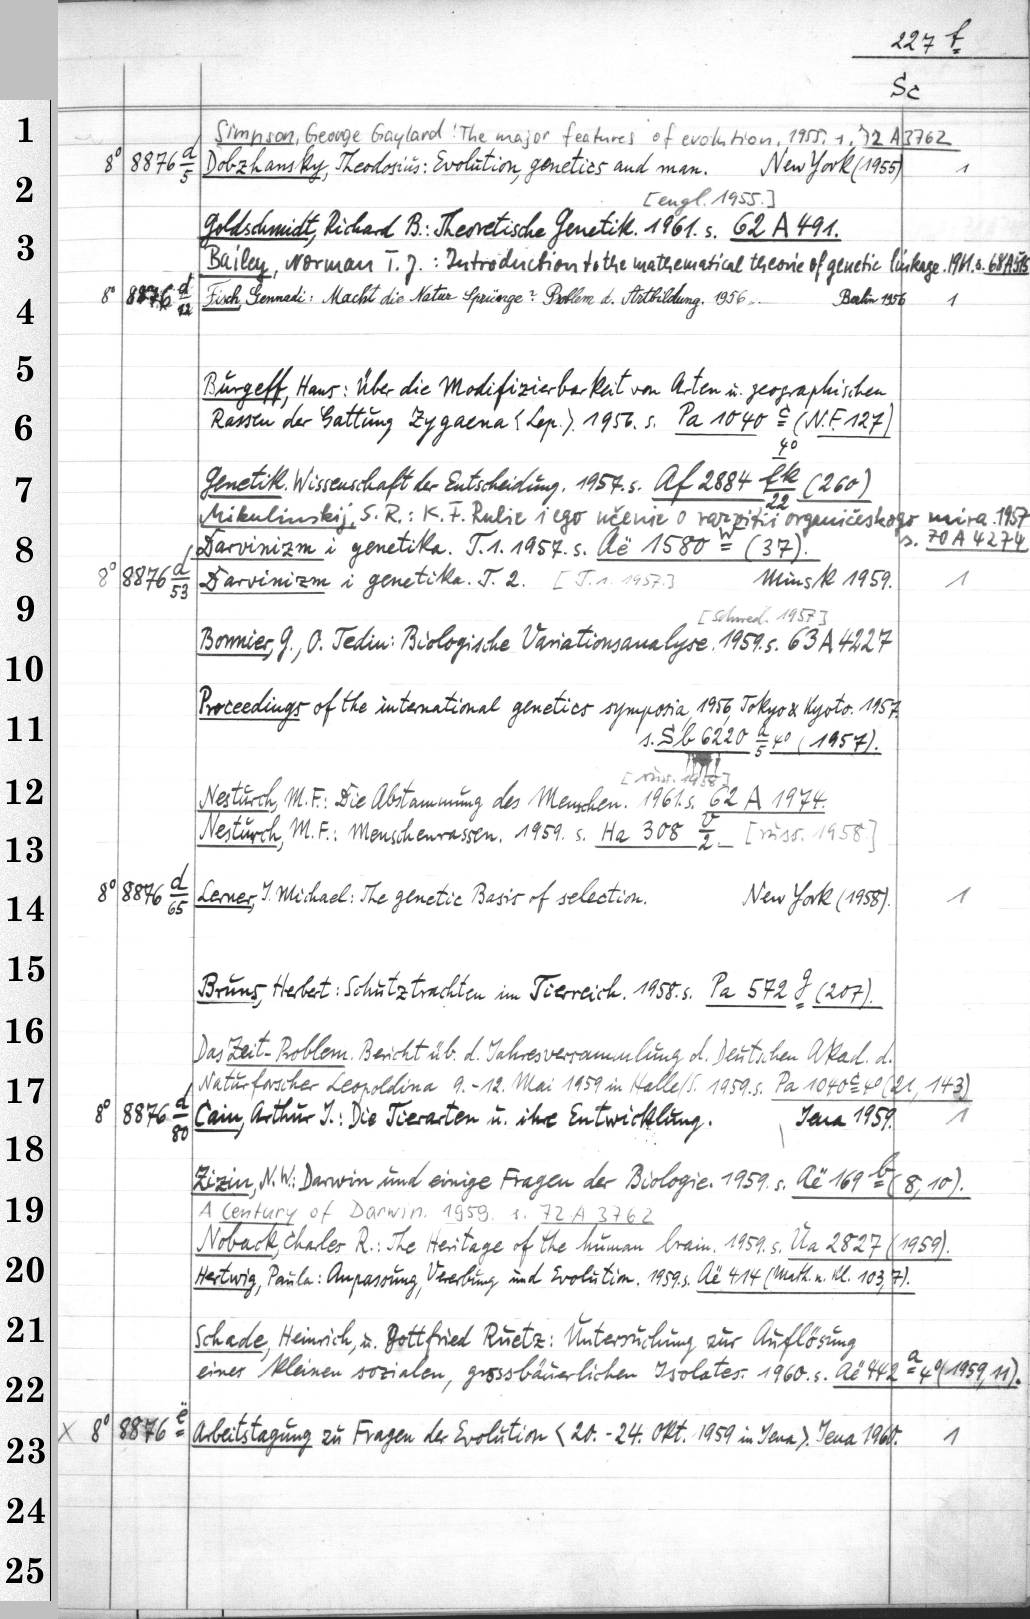 227 f
Sc
1
Simpson, George Gaylard: The major features of evolution. 1955. s. 72 A 3762
8° 8876 d/5 Dobzhansky, Theodosius: Evolution, genetics and man. New York (1955) 1
2
[engl. 1955.]
Goldschmidt, Richard B.: Theoretische Genetik. 1961. s. 62 A 491.
3
Bailey, Norman T. J.: Introduction to the mathematical theorie of genetic linkage. 1961. s.
8° 8876 d/12 Fisch, Gennadi: Macht die Natur Sprünge? Problem d. Artbildung. 1956. Berlin 1956 1
4
5
Burgeff, Hans: Über die Modifizierbarkeit von Arten u. geographischen
6
Rassen der Gattung Zygaena <Lep.>. 1956. s. Pa 1040 c 4° (N.F. 127)
7
Genetik. Wissenschaft der Entscheidung. 1957. s. Af 2884 fk/22 (260)
Mikulinskij, S. R.: K. F. Rulie i ego učenie o razvitii organičeskogo mira. 1957
s. 70 A 4274
8
Darvinizm i genetika. T. 1. 1957. s. Aë 1580 w (37).
8° 8876 d/53 Darvinizm i genetika. T. 2. [T. 1. 1957.] Minsk 1959. 1
9
[schwed. 1957]
Bonnier, G., O. Tedin: Biologische Variationsanalyse. 1959. s. 63 A 4227
10
Proceedings of the international genetics symposia, 1956, Tokyo & Kyoto. 1957.
11
s. Sb 6220 d/5 4° (1957).
[russ. 1958]
12
Nesturch, M. F.: Die Abstammung des Menschen. 1961. s. 62 A 1974.
Nesturch, M. F.: Menschenrassen. 1959. s. Ha 308 v/2. [russ. 1958]
13
8° 8876 d/65 Lerner, I. Michael: The genetic Basis of selection. New York (1958). 1
14
15
Bruns, Herbert: Schutztrachten im Tierreich. 1958. s. Pa 572 g (207).
16
Das Zeit-Problem. Bericht üb. d. Jahresversammlung d. Deutschen Akad. d.
17
Naturforscher Leopoldina 9.-12. Mai 1959 in Halle/S. 1959. s. Pa 1040 c 4° (21, 143)
8° 8876 d/80 Cain, Arthur J.: Die Tierarten u. ihre Entwicklung. Jena 1959. 1
18
Zizin, N. W.: Darwin und einige Fragen der Biologie. 1959. s. Aë 169 b (8, 10).
19
A Century of Darwin. 1959. s. 72 A 3762
Noback, Charles R.: The Heritage of the human brain. 1959. s. Ua 2827 (1959).
20
Hertwig, Paula: Anpassung, Vererbung und Evolution. 1959. s. Aë 414 (Math. n. Kl. 103, 7).
21
Schade, Heinrich, u. Gottfried Ruetz: Untersuchung zur Auflösung
22
eines kleinen sozialen, grossbäuerlichen Isolates. 1960. s. Aë 442 a 4° (1959, 11).
x 8° 8876 e Arbeitstagung zu Fragen der Evolution <20.-24. Okt. 1959 in Jena>. Jena 1960. 1
23
24
25